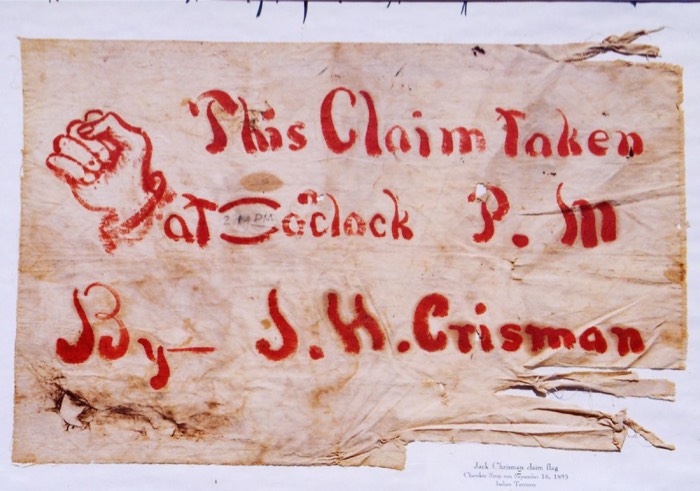 This Claim Taken
at 2:14 PM o'clock P. M
By- J. H. Crisman
Jack Chrisman claim flag
Cherokee Strip run September 16, 1893
Indian Territory